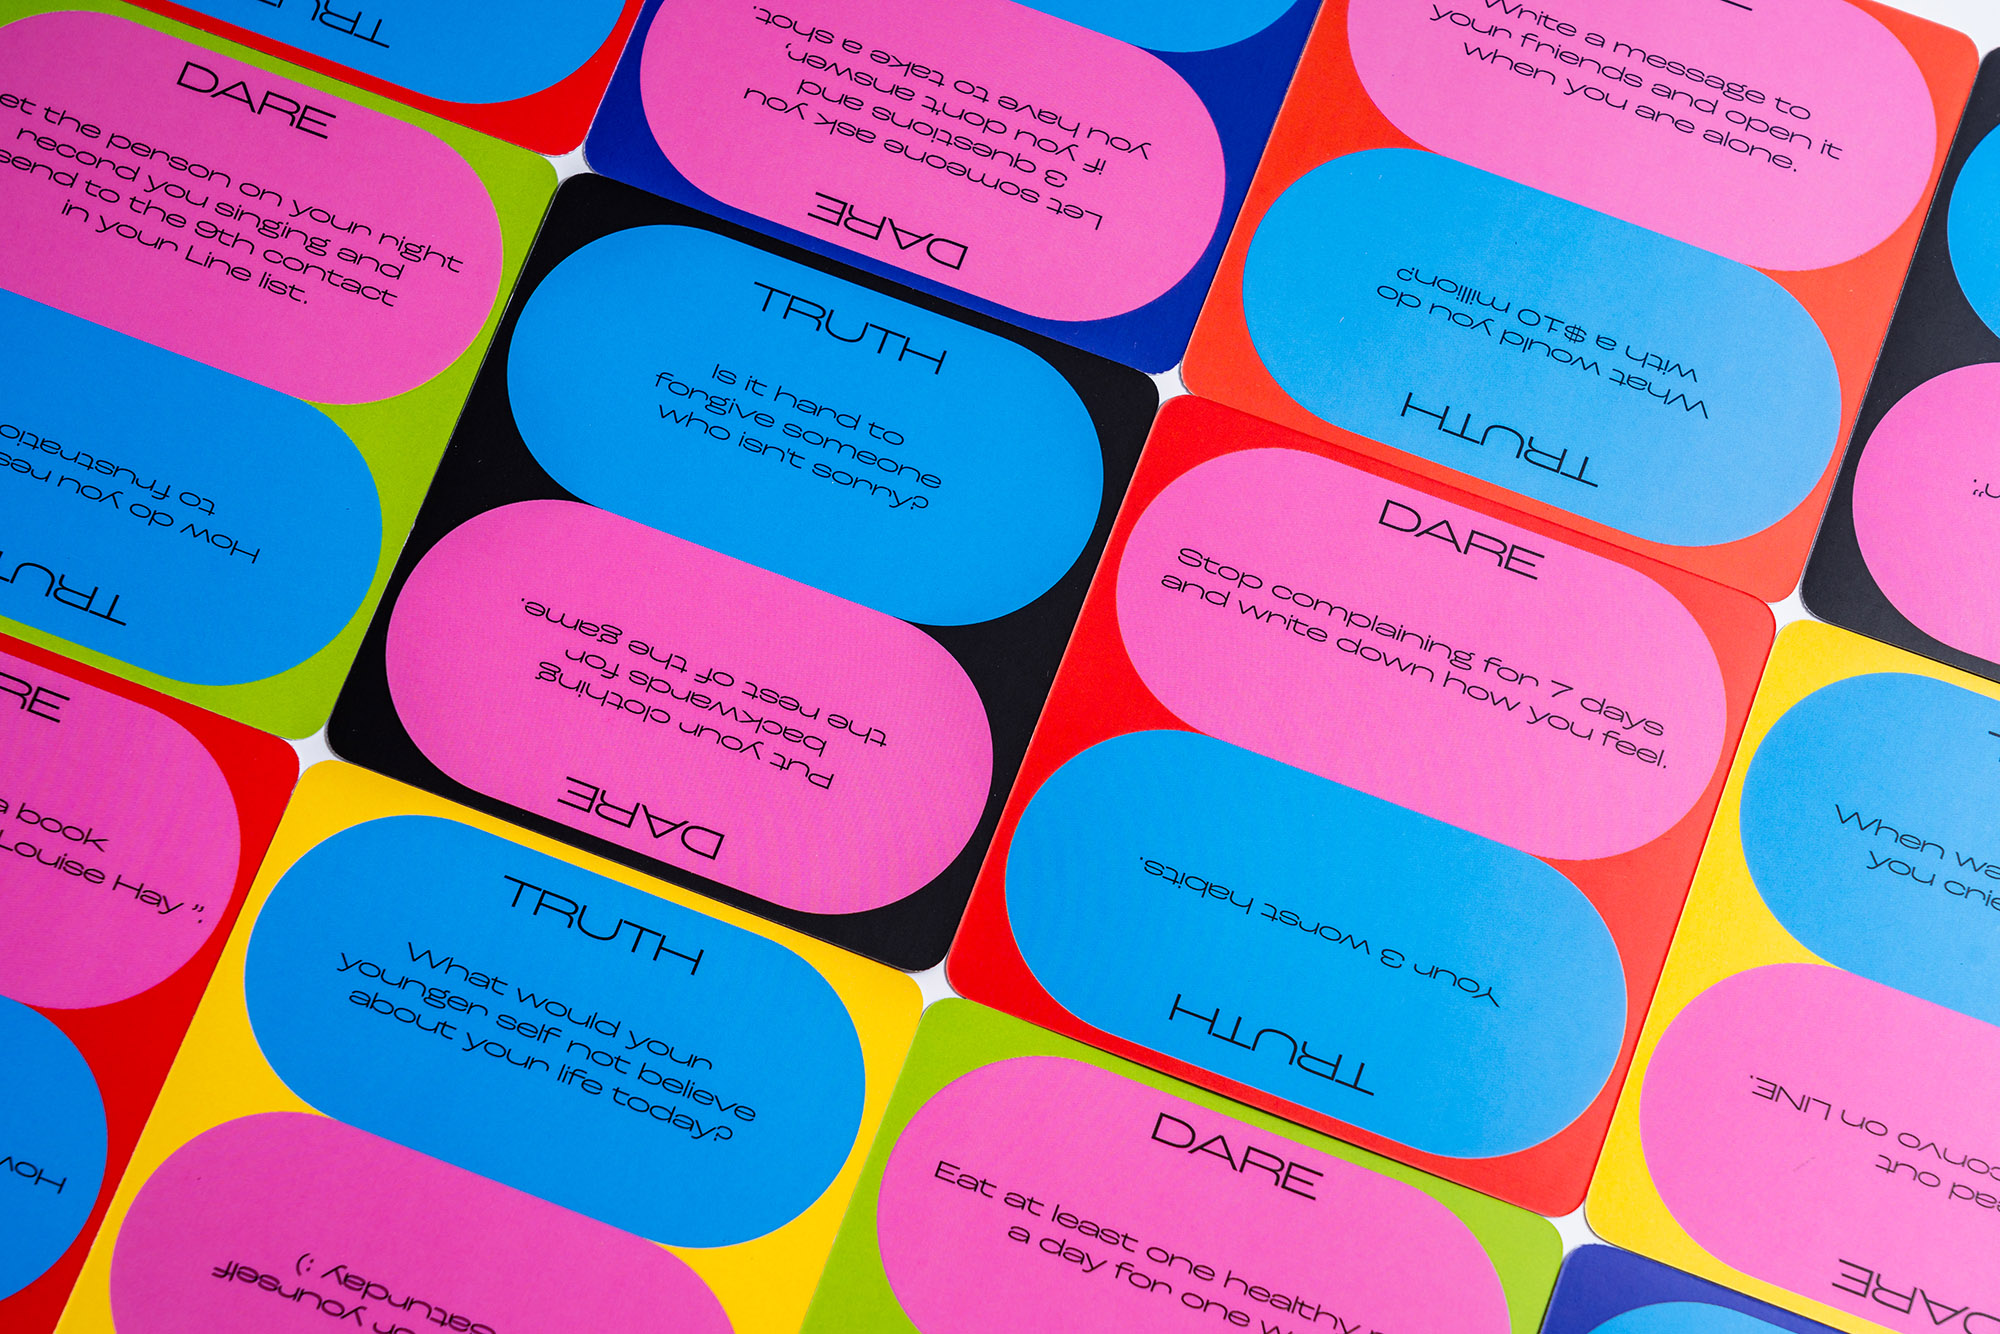 TRUTH
DARE
et the person on your right
record you singing and
send to the 9th contact
in your Line list.
TRUTH
How do you
to
DARE
Let someone ask you
3 questions and
if you don't answer,
you have to take a shot.
Write a message to
your friends and open it
when you are alone.
TRUTH
What would you do
with a $10 million?
TRUTH
Is it hard to
forgive someone
who isn't sorry?
DARE
Put your clothing
backwards for
the rest of the game.
DARE
Stop complaining for 7 days
and write down how you feel.
TRUTH
Your 3 worst habits.
a book
Louise Hay ”.
How
TRUTH
What would your
younger self not believe
about your life today?
yourself
saturday :)
DARE
Eat at least one healthy
a day for one
When
you
DARE
out
convo on LINE.